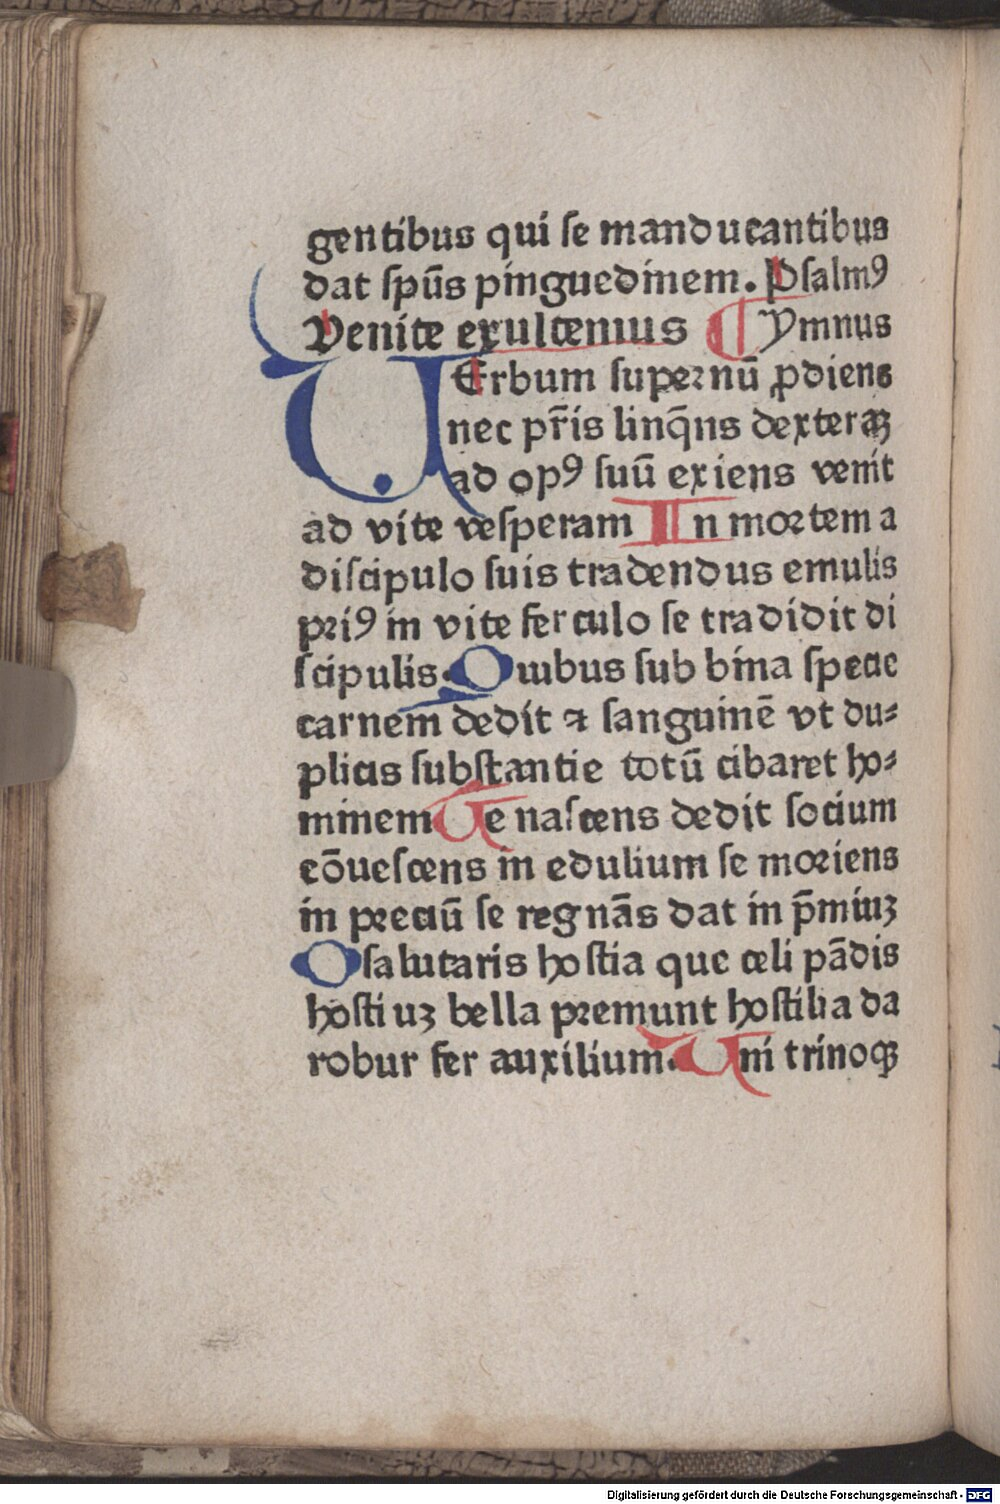 gentibus qui se manducantibus
dat spūs pinguedinem. Psalmꝰ
Venite exultemus Ymnus
UErbum supernū ꝓdiens
nec pr̄is linq̄ns dexteraꝫ
ad opꝰ suū exiens venit
ad vite vesperam In mortem a
discipulo suis tradendus emulis
priꝰ in vite ferculo se tradidit di
scipulis. Quibus sub bina specie
carnem dedit ⁊ sanguinē vt du⸗
plicis substantie totū cibaret ho⸗
minem Se nascens dedit socium
cōuescens in edulium se moriens
in preciū se regnās dat in p̄miuꝫ
O salutaris hostia que celi pādis
hostiuꝫ bella premunt hostilia da
robur fer auxilium. Uni trinoqꝫ
Digitalisierung gefördert durch die Deutsche Forschungsgemeinschaft - DFG